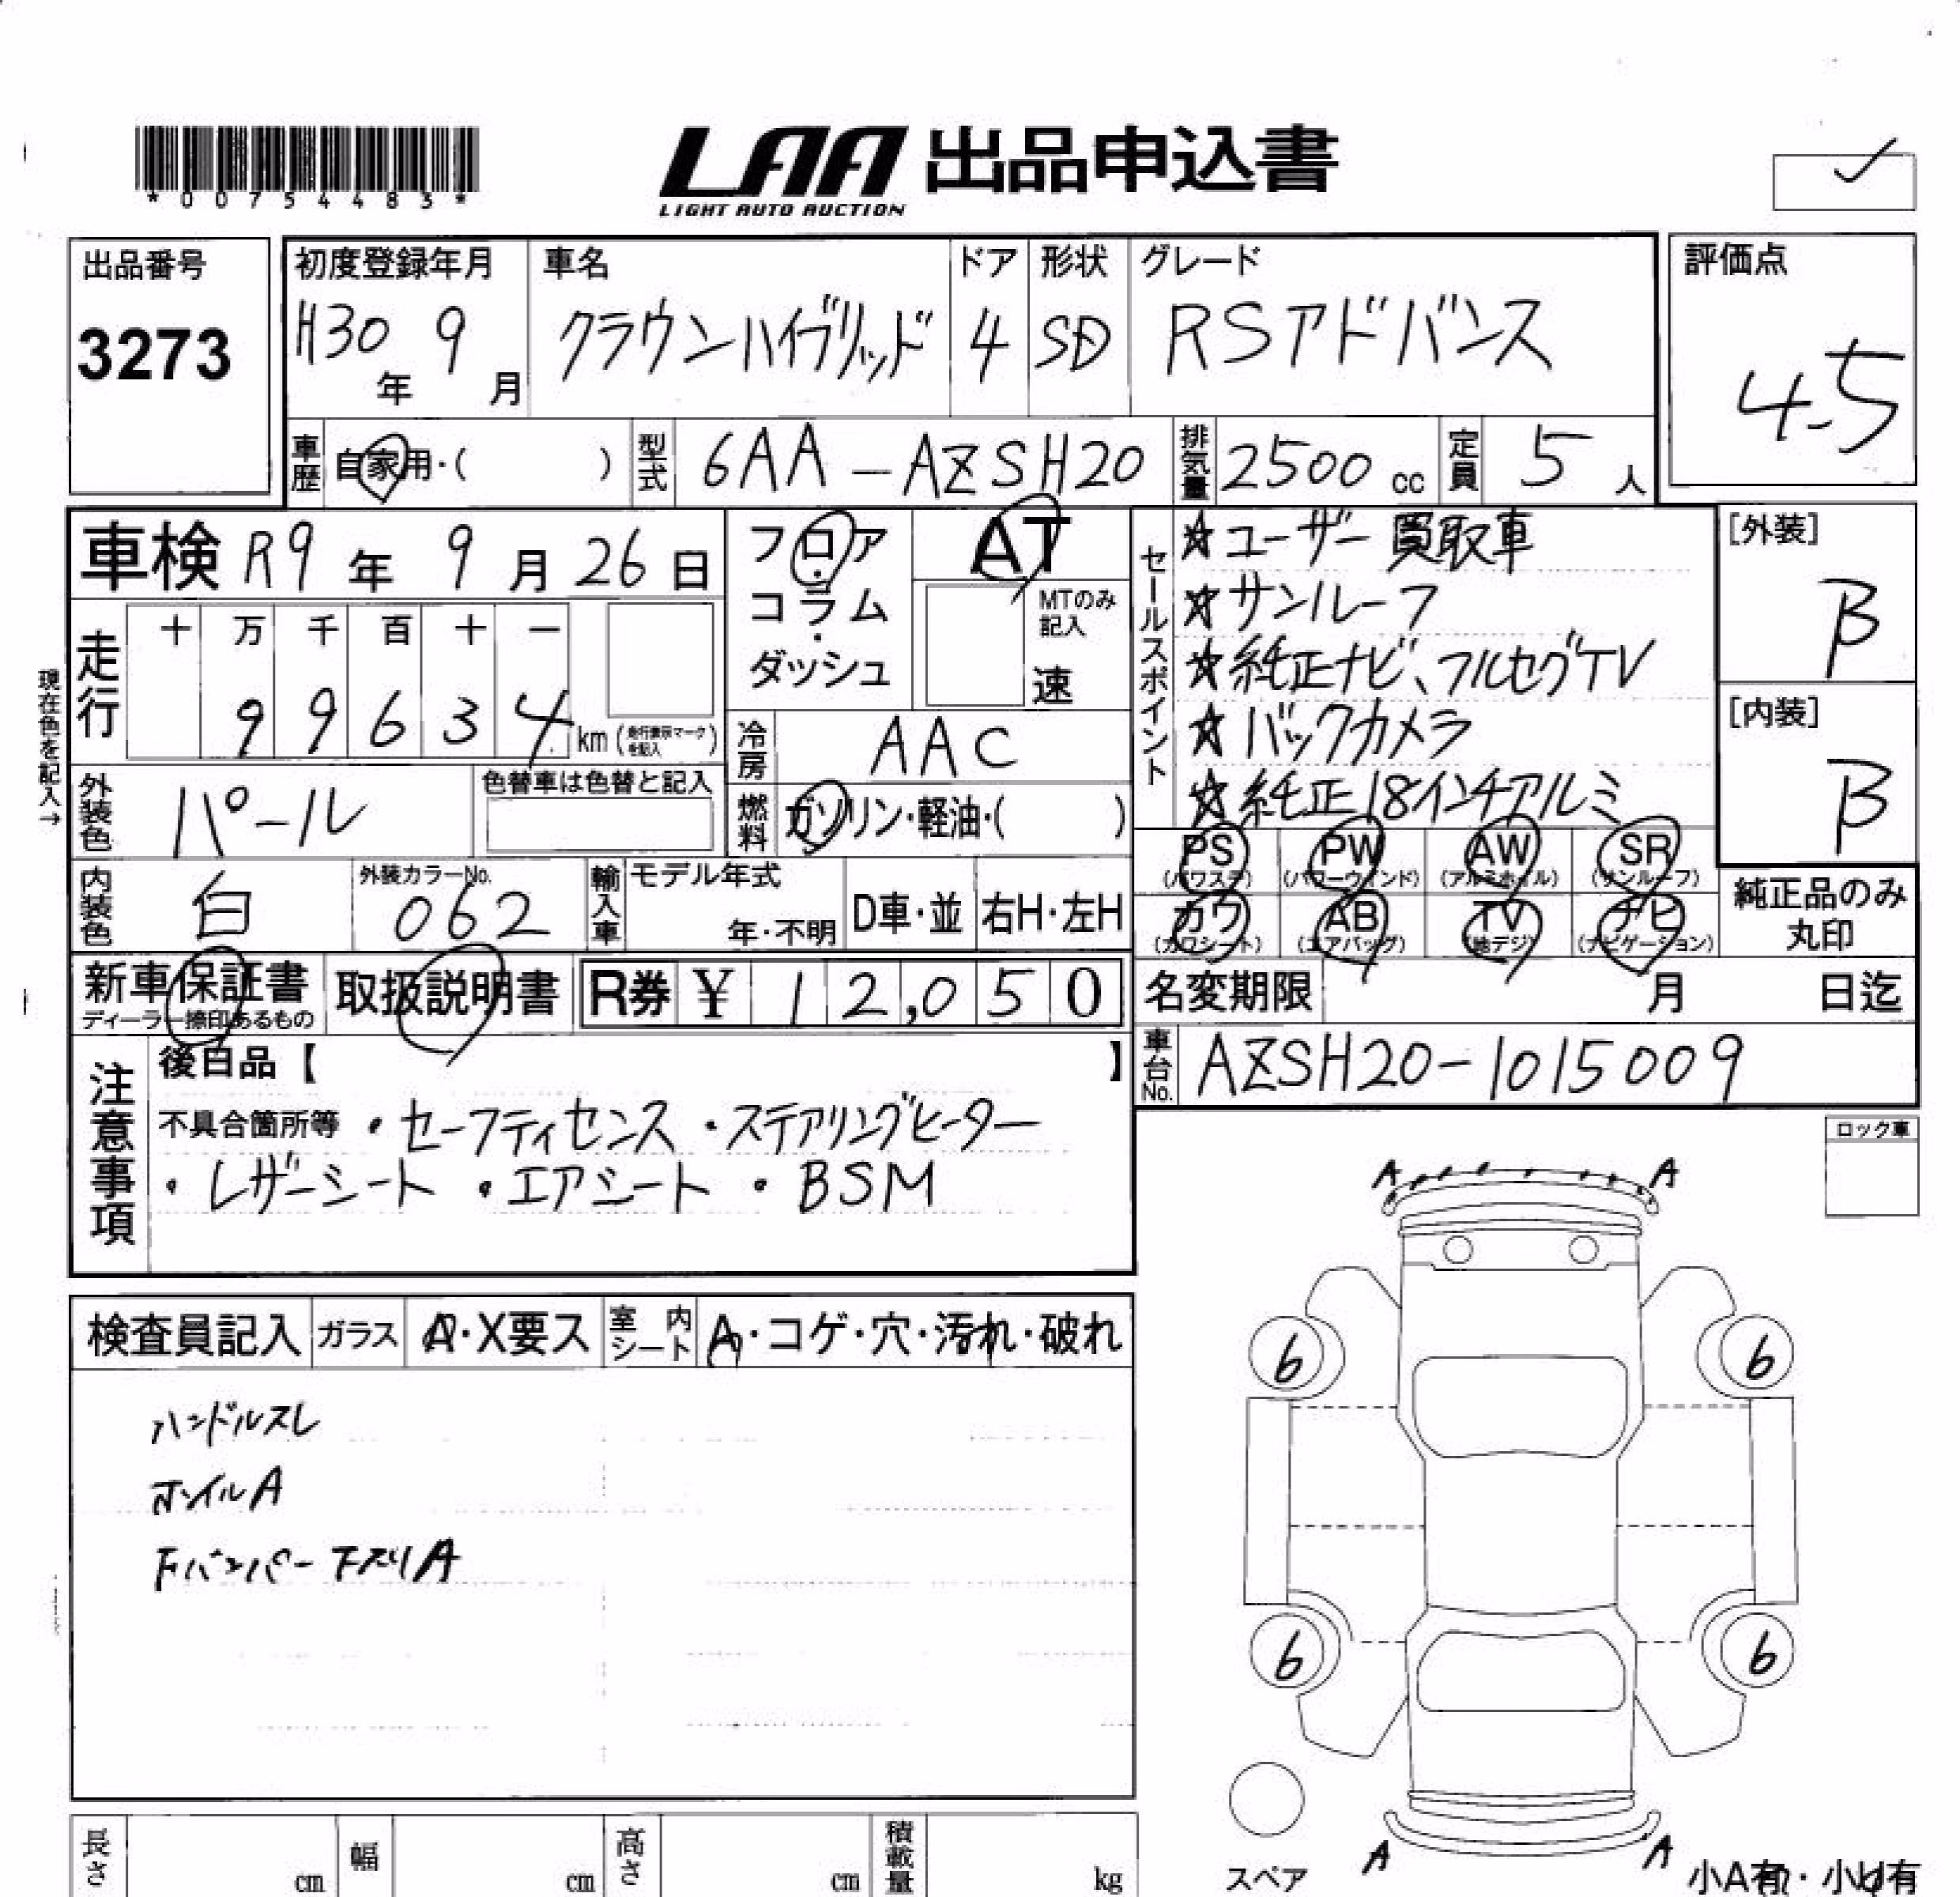 *00754483*
LAA 出品申込書
LIGHT AUTO AUCTION
出品番号
3273
初度登録年月
H30年 9月
車名
クラウンハイブリッド
ドア
4
形状
SD
グレード
RSアドバンス
評価点
4.5
車歴 自家用・( )
型式 6AA-AZSH20
排気量 2500cc
定員 5人
車検 R9年 9月 26日
フロア・コラム・ダッシュ
AT
MTのみ記入
速
セールスポイント
☆ユーザー買取車
☆サンルーフ
☆純正ナビ、フルセグTV
☆バックカメラ
☆純正18インチアルミ
[外装]
B
[内装]
B
現在色を記入→
走行
十 万 千 百 十 一
9 9 6 3 4 km (走行表示マークを記入)
冷房 AAC
外装色 パール
色替車は色替と記入
燃料 ガソリン・軽油・( )
PS (パワステ)
PW (パワーウィンド)
AW (アルミホイル)
SR (サンルーフ)
カワ (カワシート)
AB (エアバッグ)
TV (地デジ)
ナビ (ナビゲーション)
純正品のみ丸印
内装色 白
外装カラーNo. 062
輸入車
モデル年式
年・不明
D車・並
右H・左H
新車保証書
ディーラー捺印あるもの
取扱説明書
R券 ¥ 12,050
名変期限 月 日迄
車台No. AZSH20-1015009
注意事項
後日品【 】
不具合箇所等 ・セーフティセンス ・ステアリングヒーター
・レザーシート ・エアシート ・BSM
ロック車
A A
検査員記入
ガラス A・X要ス
室内シート A・コゲ・穴・汚れ・破れ
ハンドルスレ
ホイルA
Fバンパー下スリA
6 6
6 6
スペア
A A
小A有・小U有
長さ cm
幅 cm
高さ cm
積載量 kg